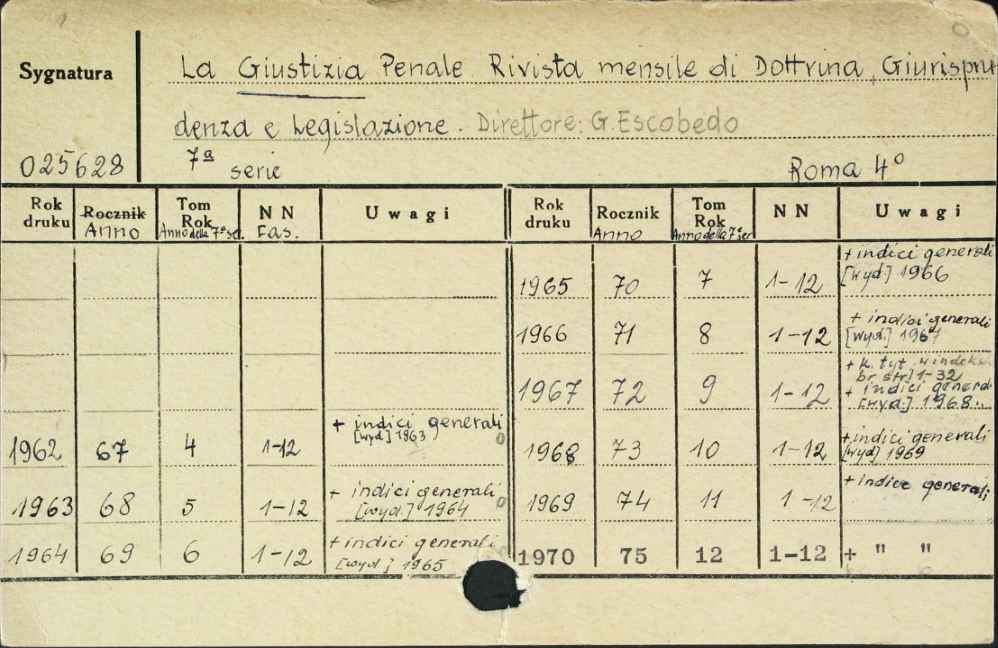 Sygnatura
La Giustizia Penale Rivista mensile di Dottrina, Giurispru
denza e Legislazione. Direttore: G. Escobedo
025628 7ª serie Roma 4°
Rok druku Rocznik Anno Tom Rok Anno della 7ª ser. NN Fas. Uwagi Rok druku Rocznik Anno Tom Rok Anno della 7ª ser NN Uwagi
1965 70 7 1-12 + indici generali [wyd.] 1966
1966 71 8 1-12 + indici generali [wyd.] 1967
1967 72 9 1-12 + k. tyt. br. str] 1-32 + indici general [wyd.] 1968
1962 67 4 1-12 + indici generali [wyd.] 1963
1968 73 10 1-12 + indici generali [wyd] 1969
1963 68 5 1-12 + indici generali [wyd.] 1964
1969 74 11 1-12 + indice generali
1964 69 6 1-12 + indici generali [wyd.] 1965
1970 75 12 1-12 + " "